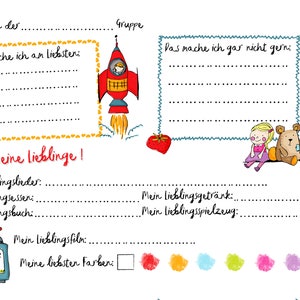 der ........................ Gruppe
che ich am liebsten:
Das mache ich gar nicht gern:
eine Lieblinge!
ngslieder:
ngsessen:
Mein Lieblingsgetränk:
ngsbuch:
Mein Lieblingsspielzeug:
Mein Lieblingsfilm:
Meine liebsten Farben: